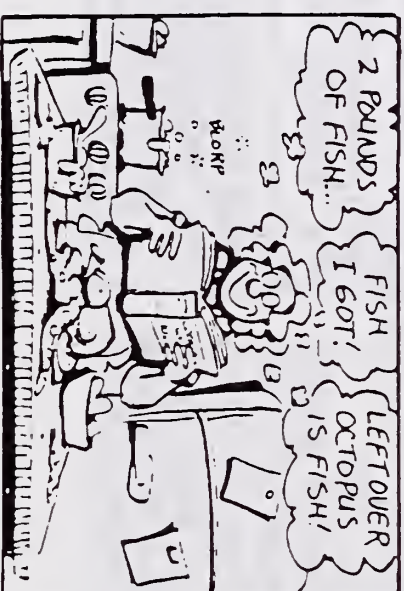 2 POUNDS
OF FISH...
FISH
I GOT!
LEFTOVER
OCTOPUS
IS FISH!
BLORP